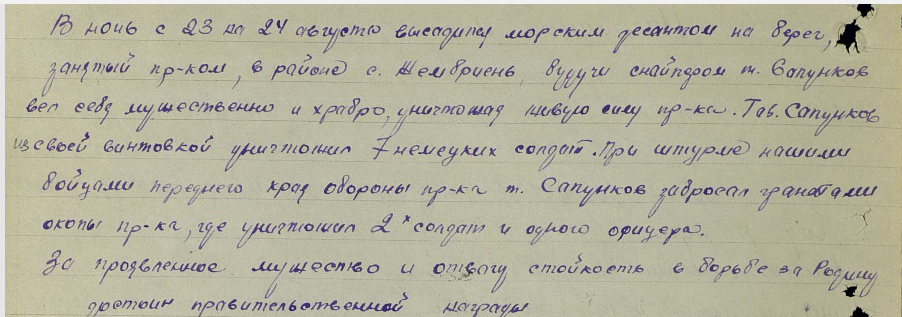 В ночь с 23 на 24 августа высадился морским десантом на берег,
занятый пр-ком, в районе с. Жембриень, будучи снайпером т. Сапунков
вел себя мужественно и храбро, уничтожая живую силу пр-ка. Тов. Сапунков
из своей винтовкой уничтожил 7 немецких солдат. При штурме нашими
бойцами переднего края обороны пр-ка т. Сапунков забросал гранатами
окопы пр-ка, где уничтожил 2х солдат и одного офицера.
За проявленное мужество и отвагу стойкость в борьбе за Родину
достоин правительственной награды